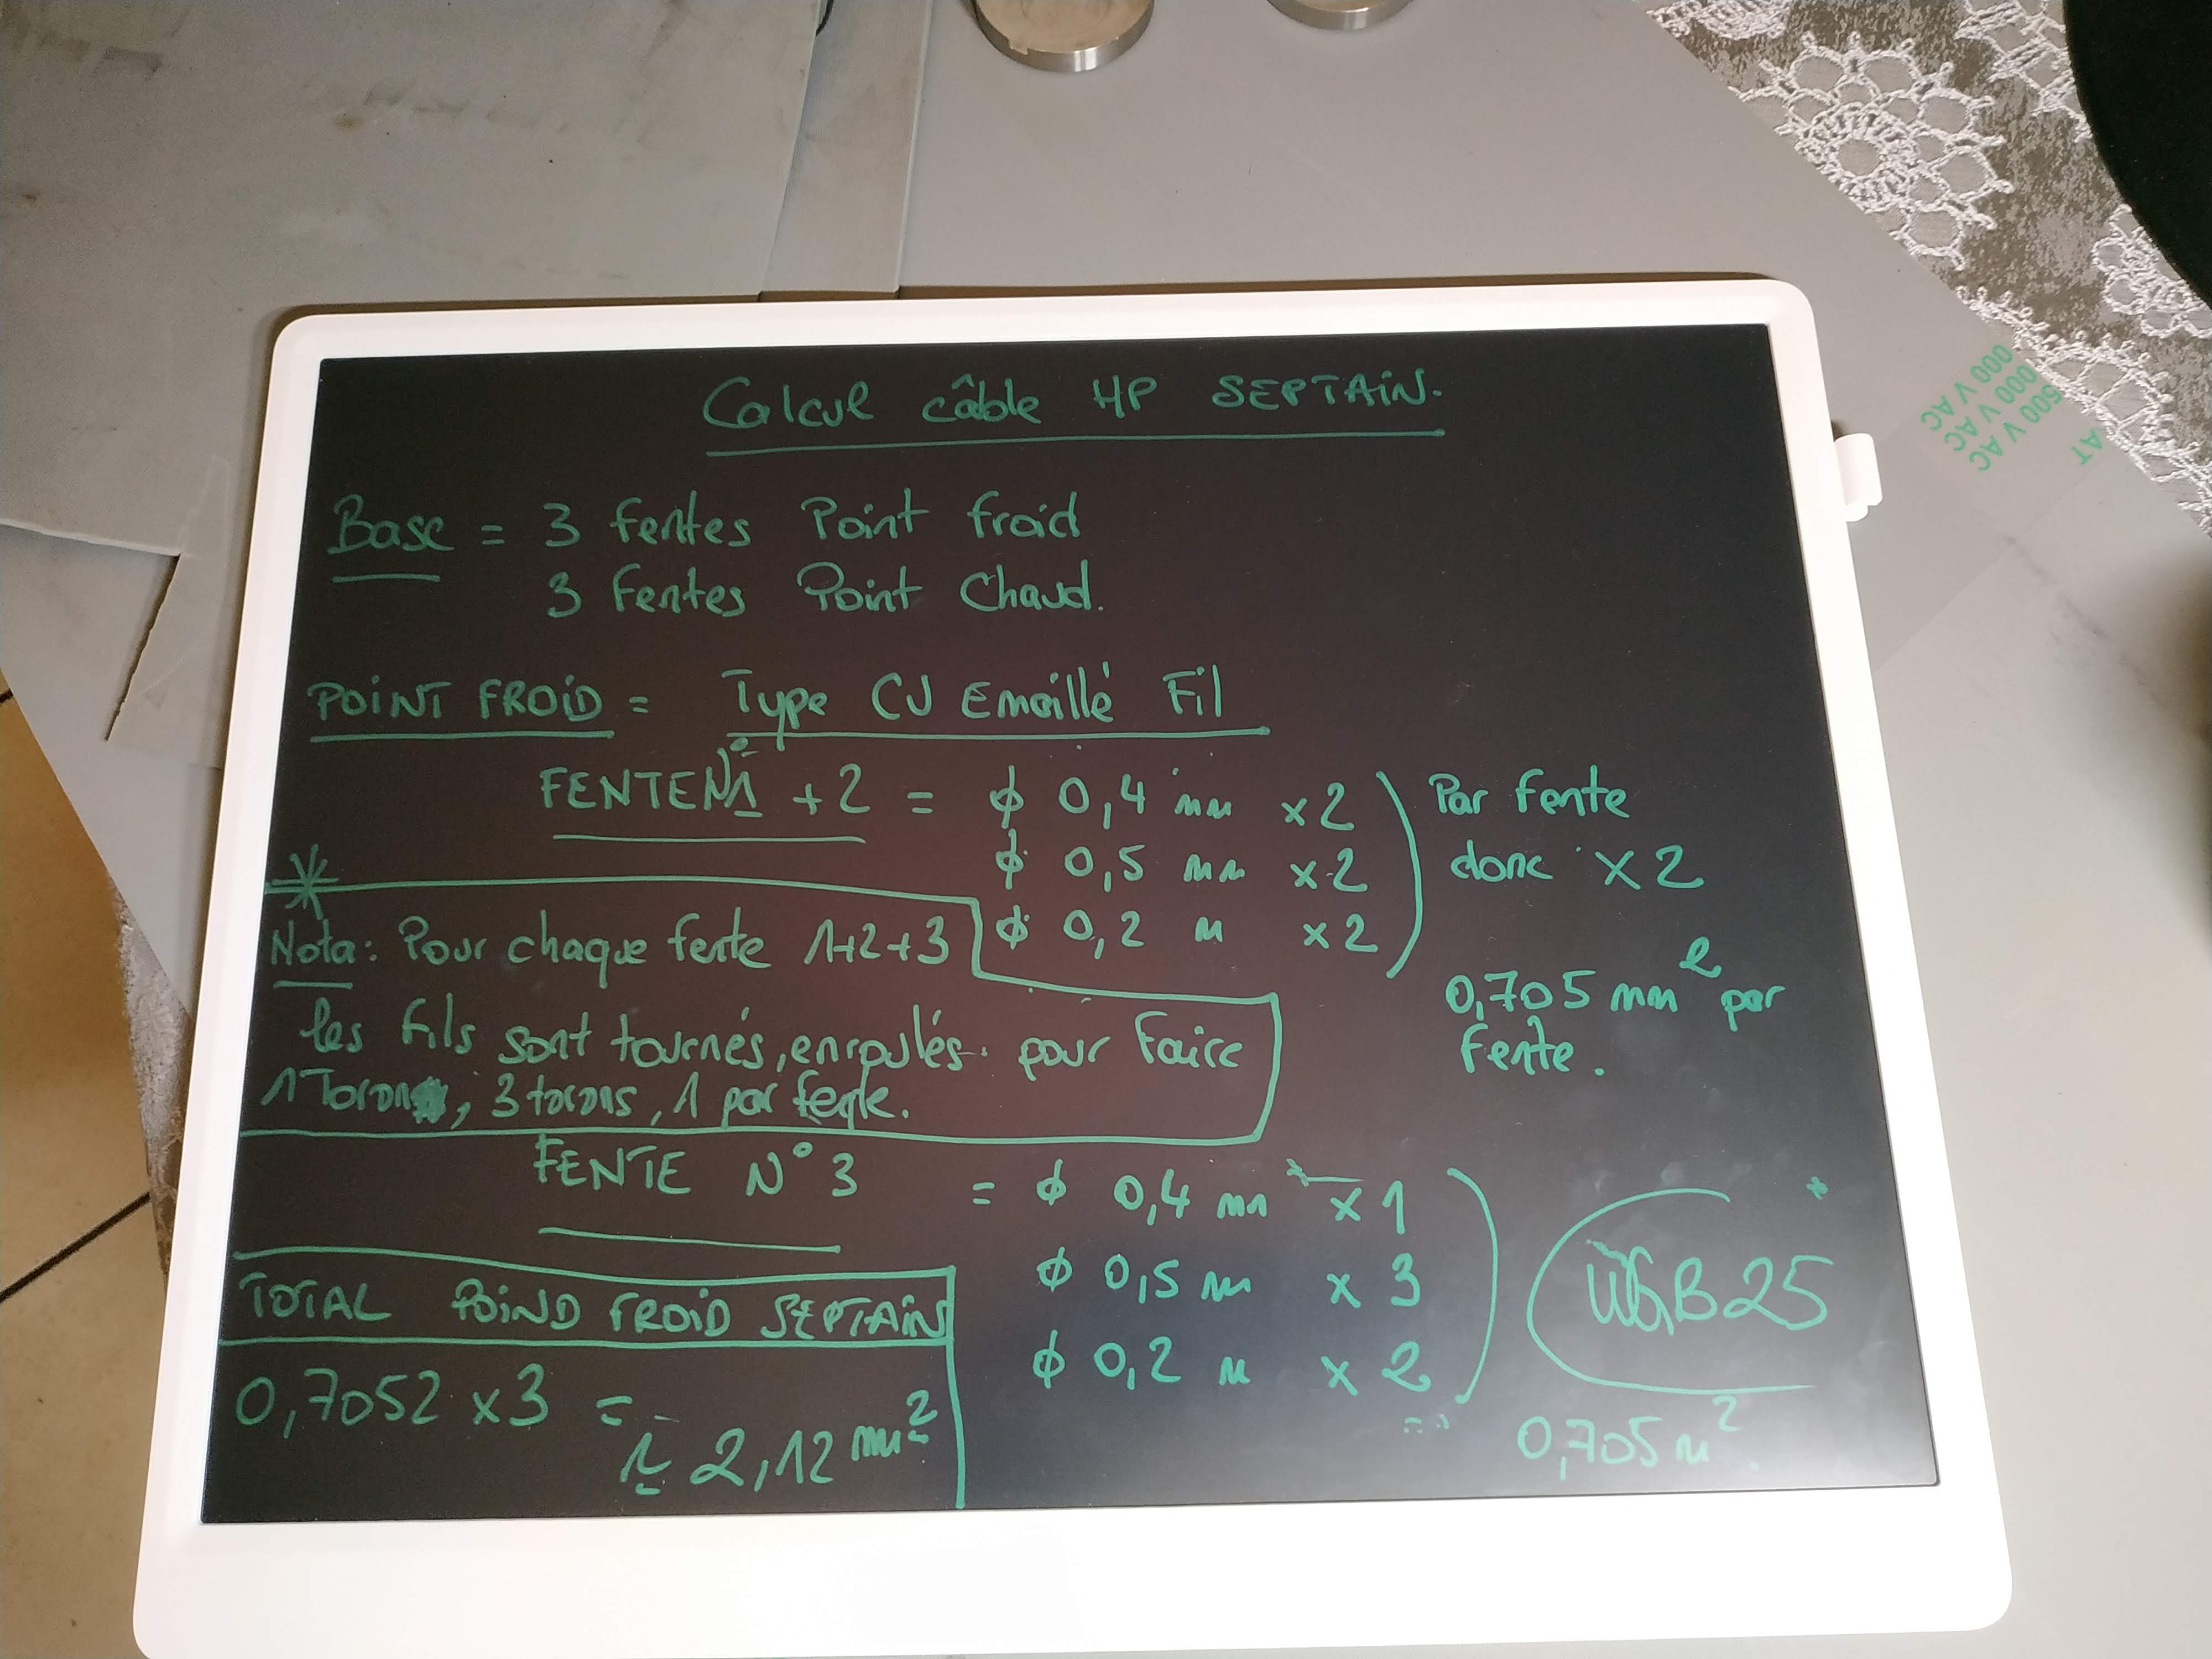 Calcul câble HP SEPTAIN.
Base = 3 fentes Point froid
3 fentes Point Chaud.
POINT FROID = Type CU Emaillé Fil
FENTE N°1 + 2 = ϕ 0,4 mm x2
ϕ 0,5 mm x2
ϕ 0,2 m x2
Par fente
donc x2
0,705 mm² par
fente.
Nota: Pour chaque fente 1+2+3
les fils sont tournés, enroulés pour faire
1 Toron, 3 torons, 1 par fente.
FENTE N°3 = ϕ 0,4 mm x1
ϕ 0,5 m x 3
ϕ 0,2 m x 2
0,705 m².
TOTAL POIND FROID SEPTAIN
0,7052 x3 =
≃ 2,12 mm²
500 V AC
000 V AC
000 V AC
AT